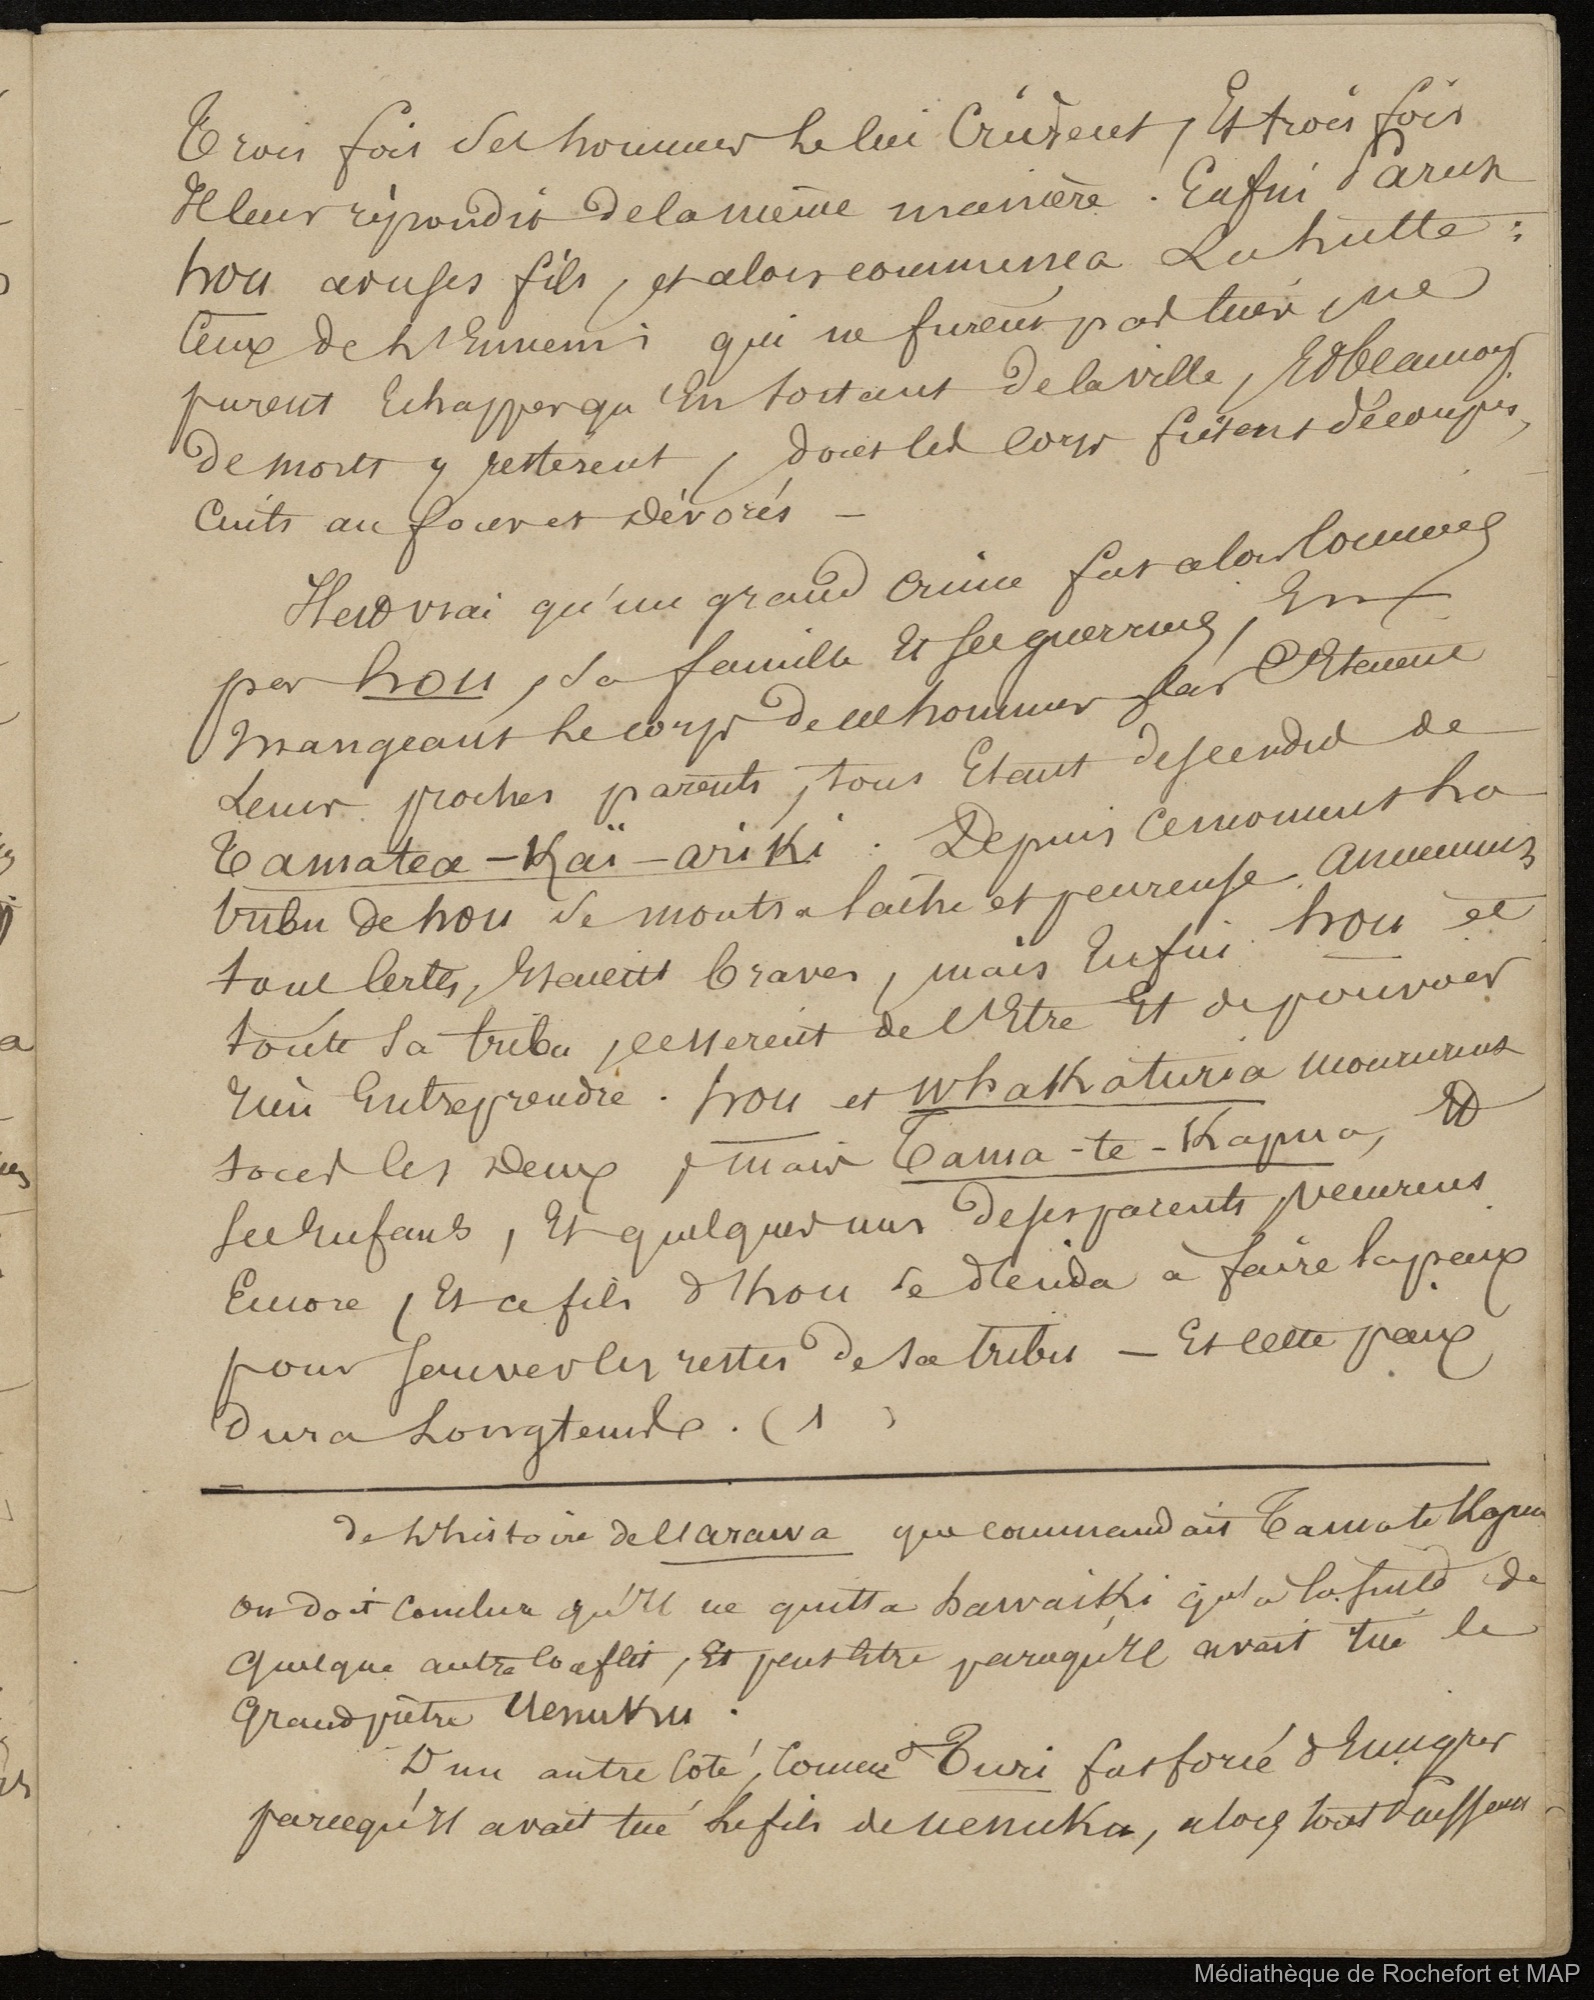 Trois fois ses hommes le lui crièrent, Et trois fois
Il leur répondit de la même manière. Enfin Parut
hou avec ses fils, et alors commença La lutte :
Ceux de l'Ennemi qui ne furent pas tués, ne
purent Echapper qu'En sortant de la ville, Et beaucoup
de morts y restèrent, dont les corps furent découpés,
Cuits au four et dévorés —
Il est vrai qu'un grand crime fut alors commis
par hou, sa famille Et ses guerriers, En
mangeant le corps de ces hommes car C'Etaient
Leurs proches parents, tous Etant descendus de
Tamatea – Kaï – ariki. Depuis ce moment la
tribu de hou se montra lâche et peureuse.
tous certes, Etaient braves, mais Enfin hou et
toute sa tribu, cessèrent de l'Etre Et de pouvoir
rien Entreprendre. hou et Whakaturia moururent
tous les deux, mais Tama-te-Kapua, Et
ses Enfants, Et quelques uns de ses parents, vécurent
Encore, Et ce fils d'hou se décida à faire la paix
pour sauver les restes de sa tribu — Et cette paix
dura Longtemps. (1)
de l'histoire de l'arawa que commandait Tama te Kapua
on doit conclure qu'Il ne quitta hawaiki qu'à la suite de
quelque autre conflit, Et peut Etre parcequ'Il avait tué le
Grand prêtre Uenuku.
D'un autre coté, comme Turi fut forcé d'Emigrer
parcequ'Il avait tué le fils de uenuku, alors
Médiathèque de Rochefort et MAP